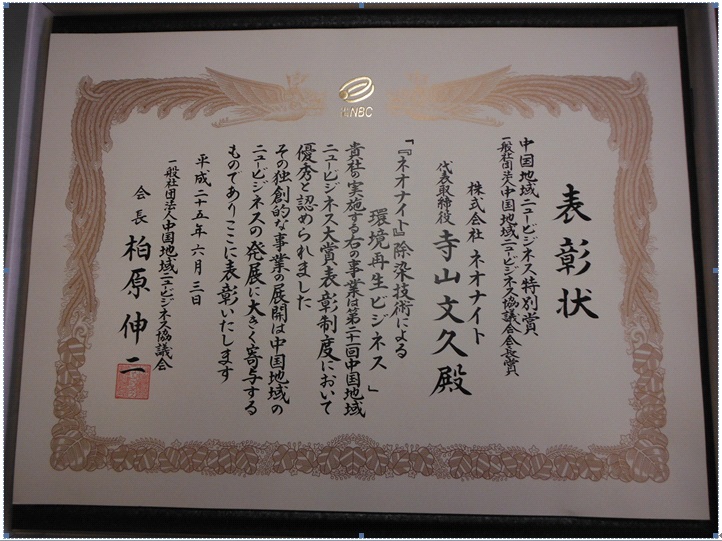 表彰状
中国地域ニュービジネス特別賞
一般社団法人中国地域ニュービジネス協議会会長賞
株式会社 ネオナイト
代表取締役 寺山文久殿
「『ネオナイト』除染技術による
環境再生ビジネス」
貴社の実施する右の事業は第二十一回中国地域
ニュービジネス大賞表彰制度において
優秀と認められました
その独創的な事業の展開は中国地域の
ニュービジネスの発展に大きく寄与する
ものでありここに表彰いたします
平成二十五年六月三日
一般社団法人中国地域ニュービジネス協議会
会長 柏原伸二